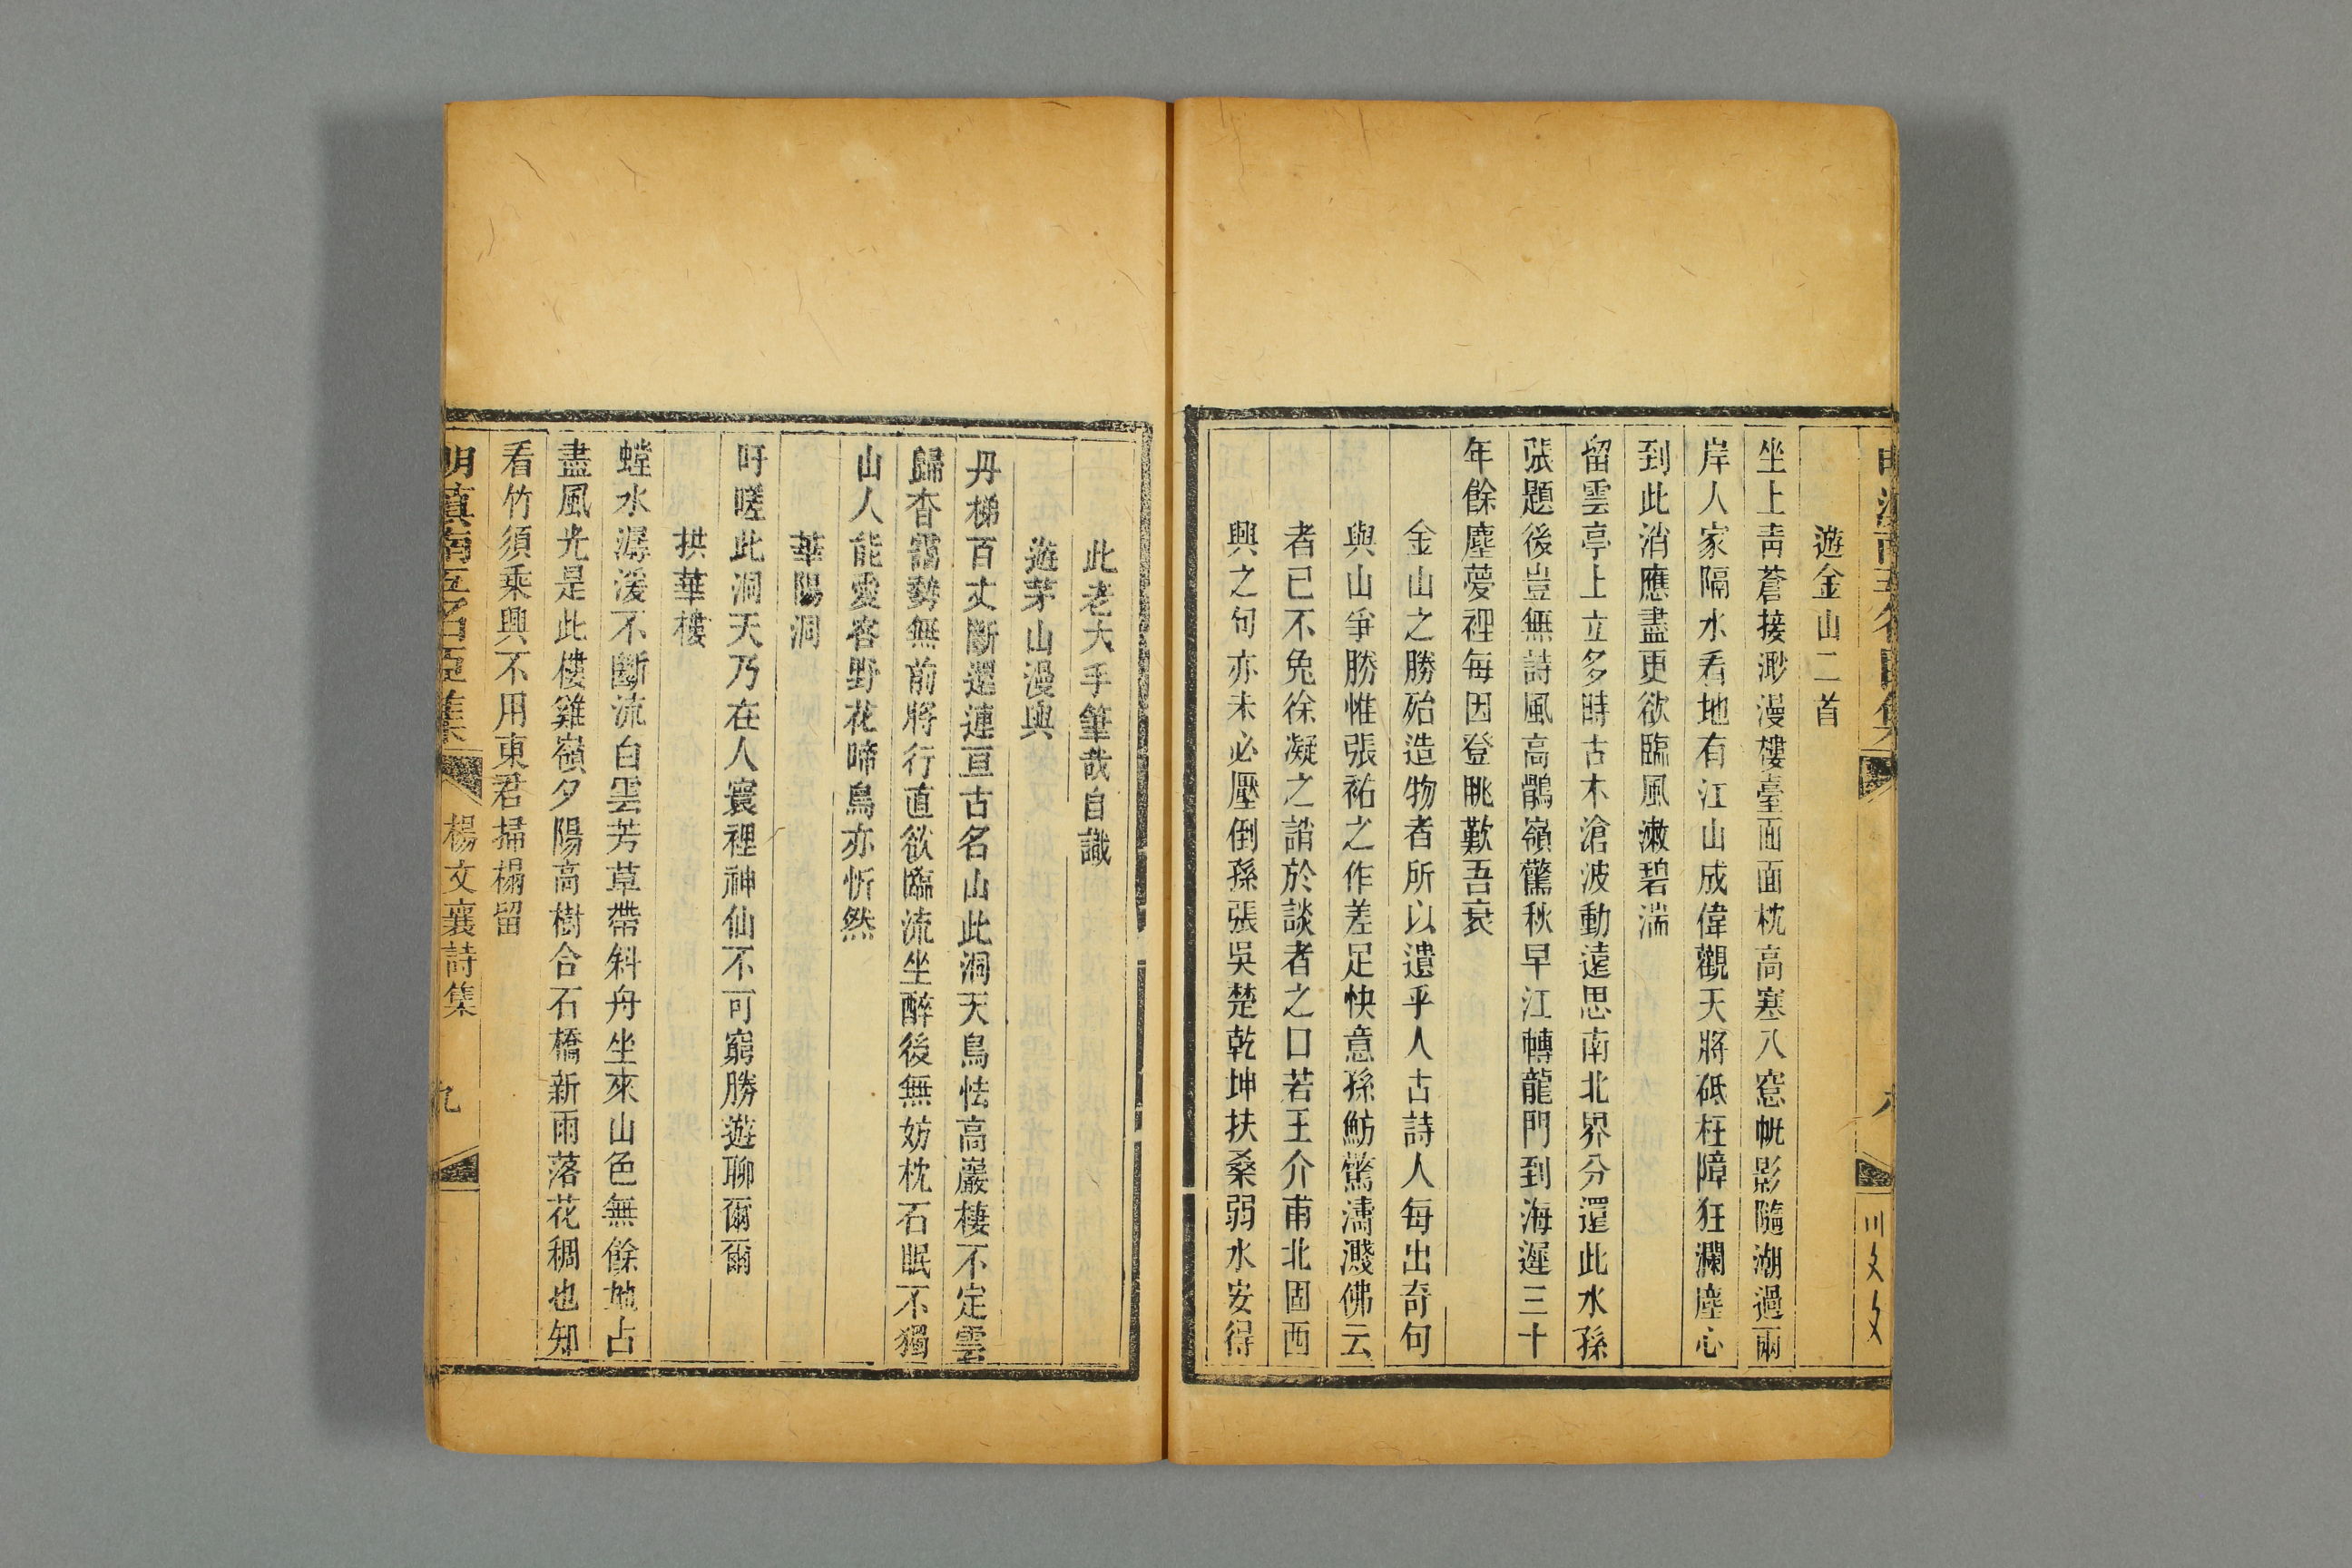 遊金山二首
坐上靑蒼接渺漫樓臺面面枕高寒八窓帆影隨潮過兩
岸人家隔水看地有江山成偉觀天將砥柱障狂瀾塵心
到此消應盡更欲臨風漱碧湍
留雲亭上立多時古木滄波動遠思南北界分還此水孫
張題後豈無詩風高鶻嶺驚秋早江轉龍門到海遲三十
年餘塵夢裡每因登眺歎吾衰
金山之勝殆造物者所以遺乎人古詩人每出奇句
與山爭勝惟張祐之作差足快意孫魴驚濤濺佛云
者已不免徐凝之誚於談者之口若王介甫北固西
興之句亦未必壓倒孫張吳楚乾坤扶桑弱水安得
川文文
此老大手筆哉自識
遊茅山漫興
丹梯百丈斷還連亘古名山此洞天鳥怯高巖棲不定雲
歸杳靄勢無前將行直欲臨流坐醉後無妨枕石眠不獨
山人能愛客野花啼鳥亦忻然
華陽洞
吁嗟此洞天乃在人寰裡神仙不可窮勝遊聊爾爾
拱華樓
螳水潺湲不斷流白雲芳草帶斜舟坐來山色無餘地占
盡風光是此樓雞嶺夕陽高樹合石橋新雨落花稠也知
看竹須乘興不用東君掃榻留
明滇南五名臣集
楊文襄詩集
九